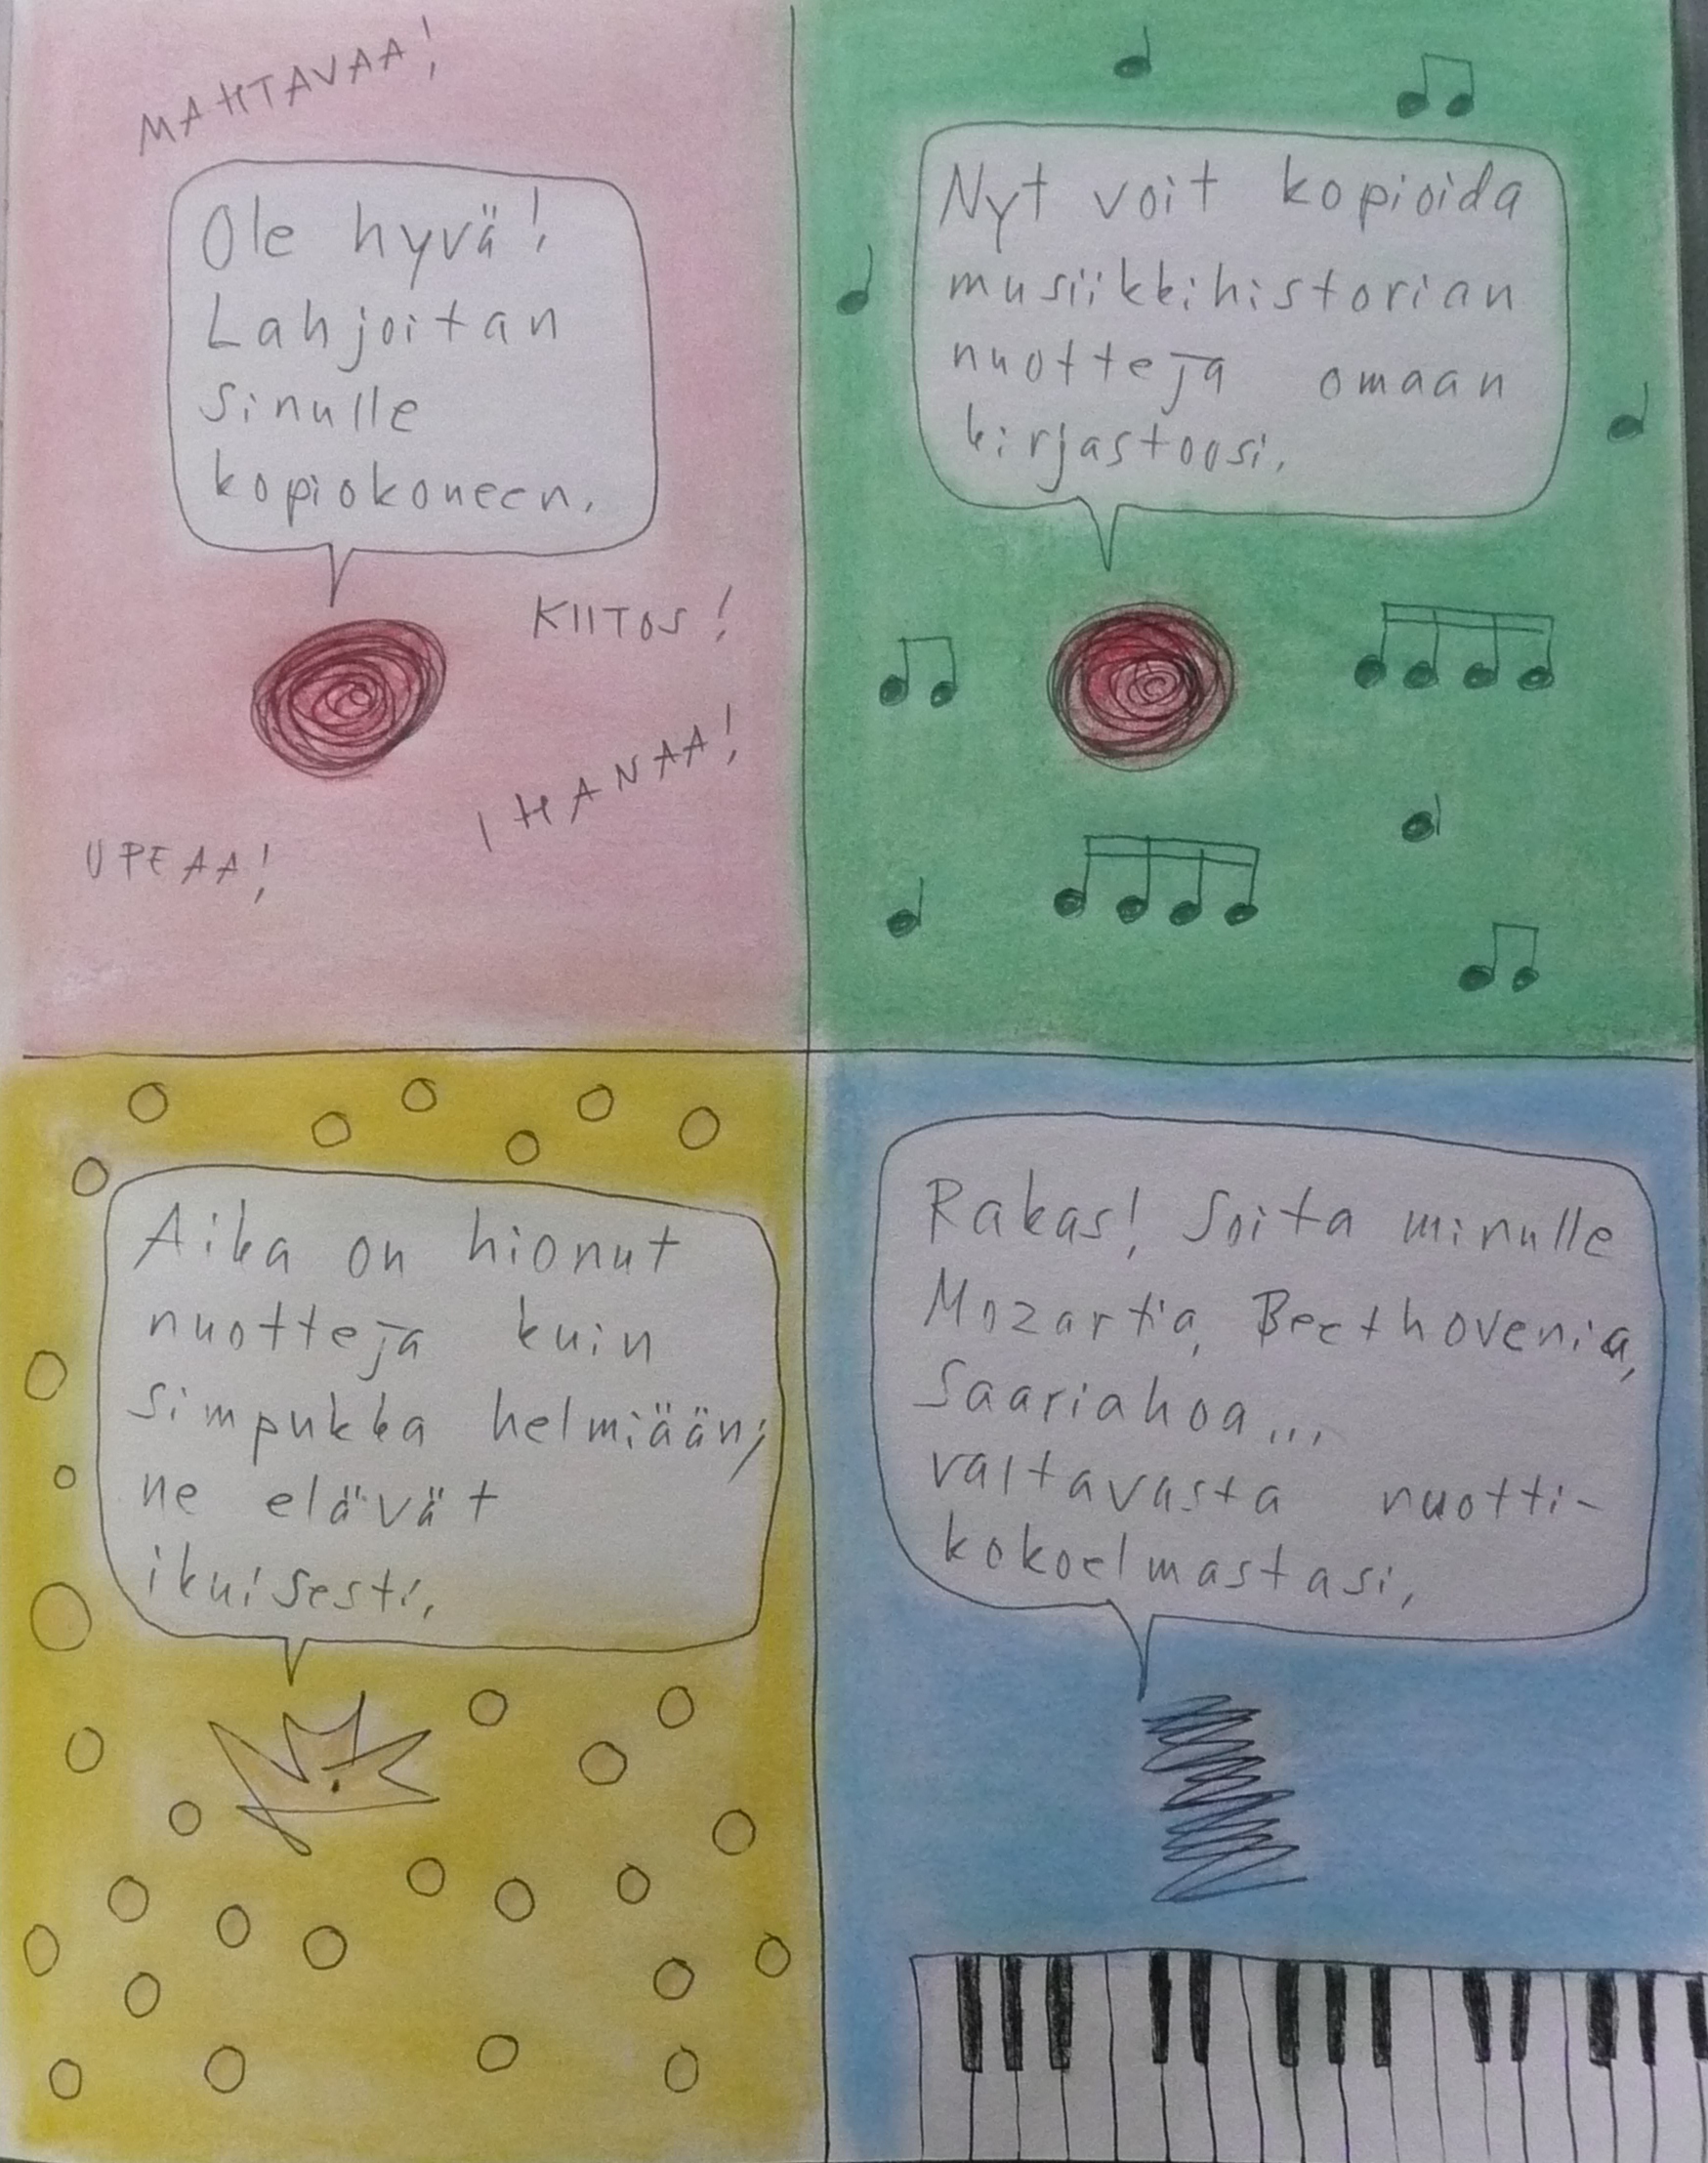 MAHTAVAA!
Ole hyvä!
Lahjoitan
sinulle
kopiokoneen.
KIITOS!
IHANAA!
UPEAA!
Nyt voit kopioida
musiikkihistorian
nuotteja omaan
kirjastoosi.
Aika on hionut
nuotteja kuin
simpukka helmiään;
ne elävät
ikuisesti.
Rakas! Soita minulle
Mozartia, Beethovenia,
Saariahoa...
valtavasta nuotti-
kokoelmastasi.